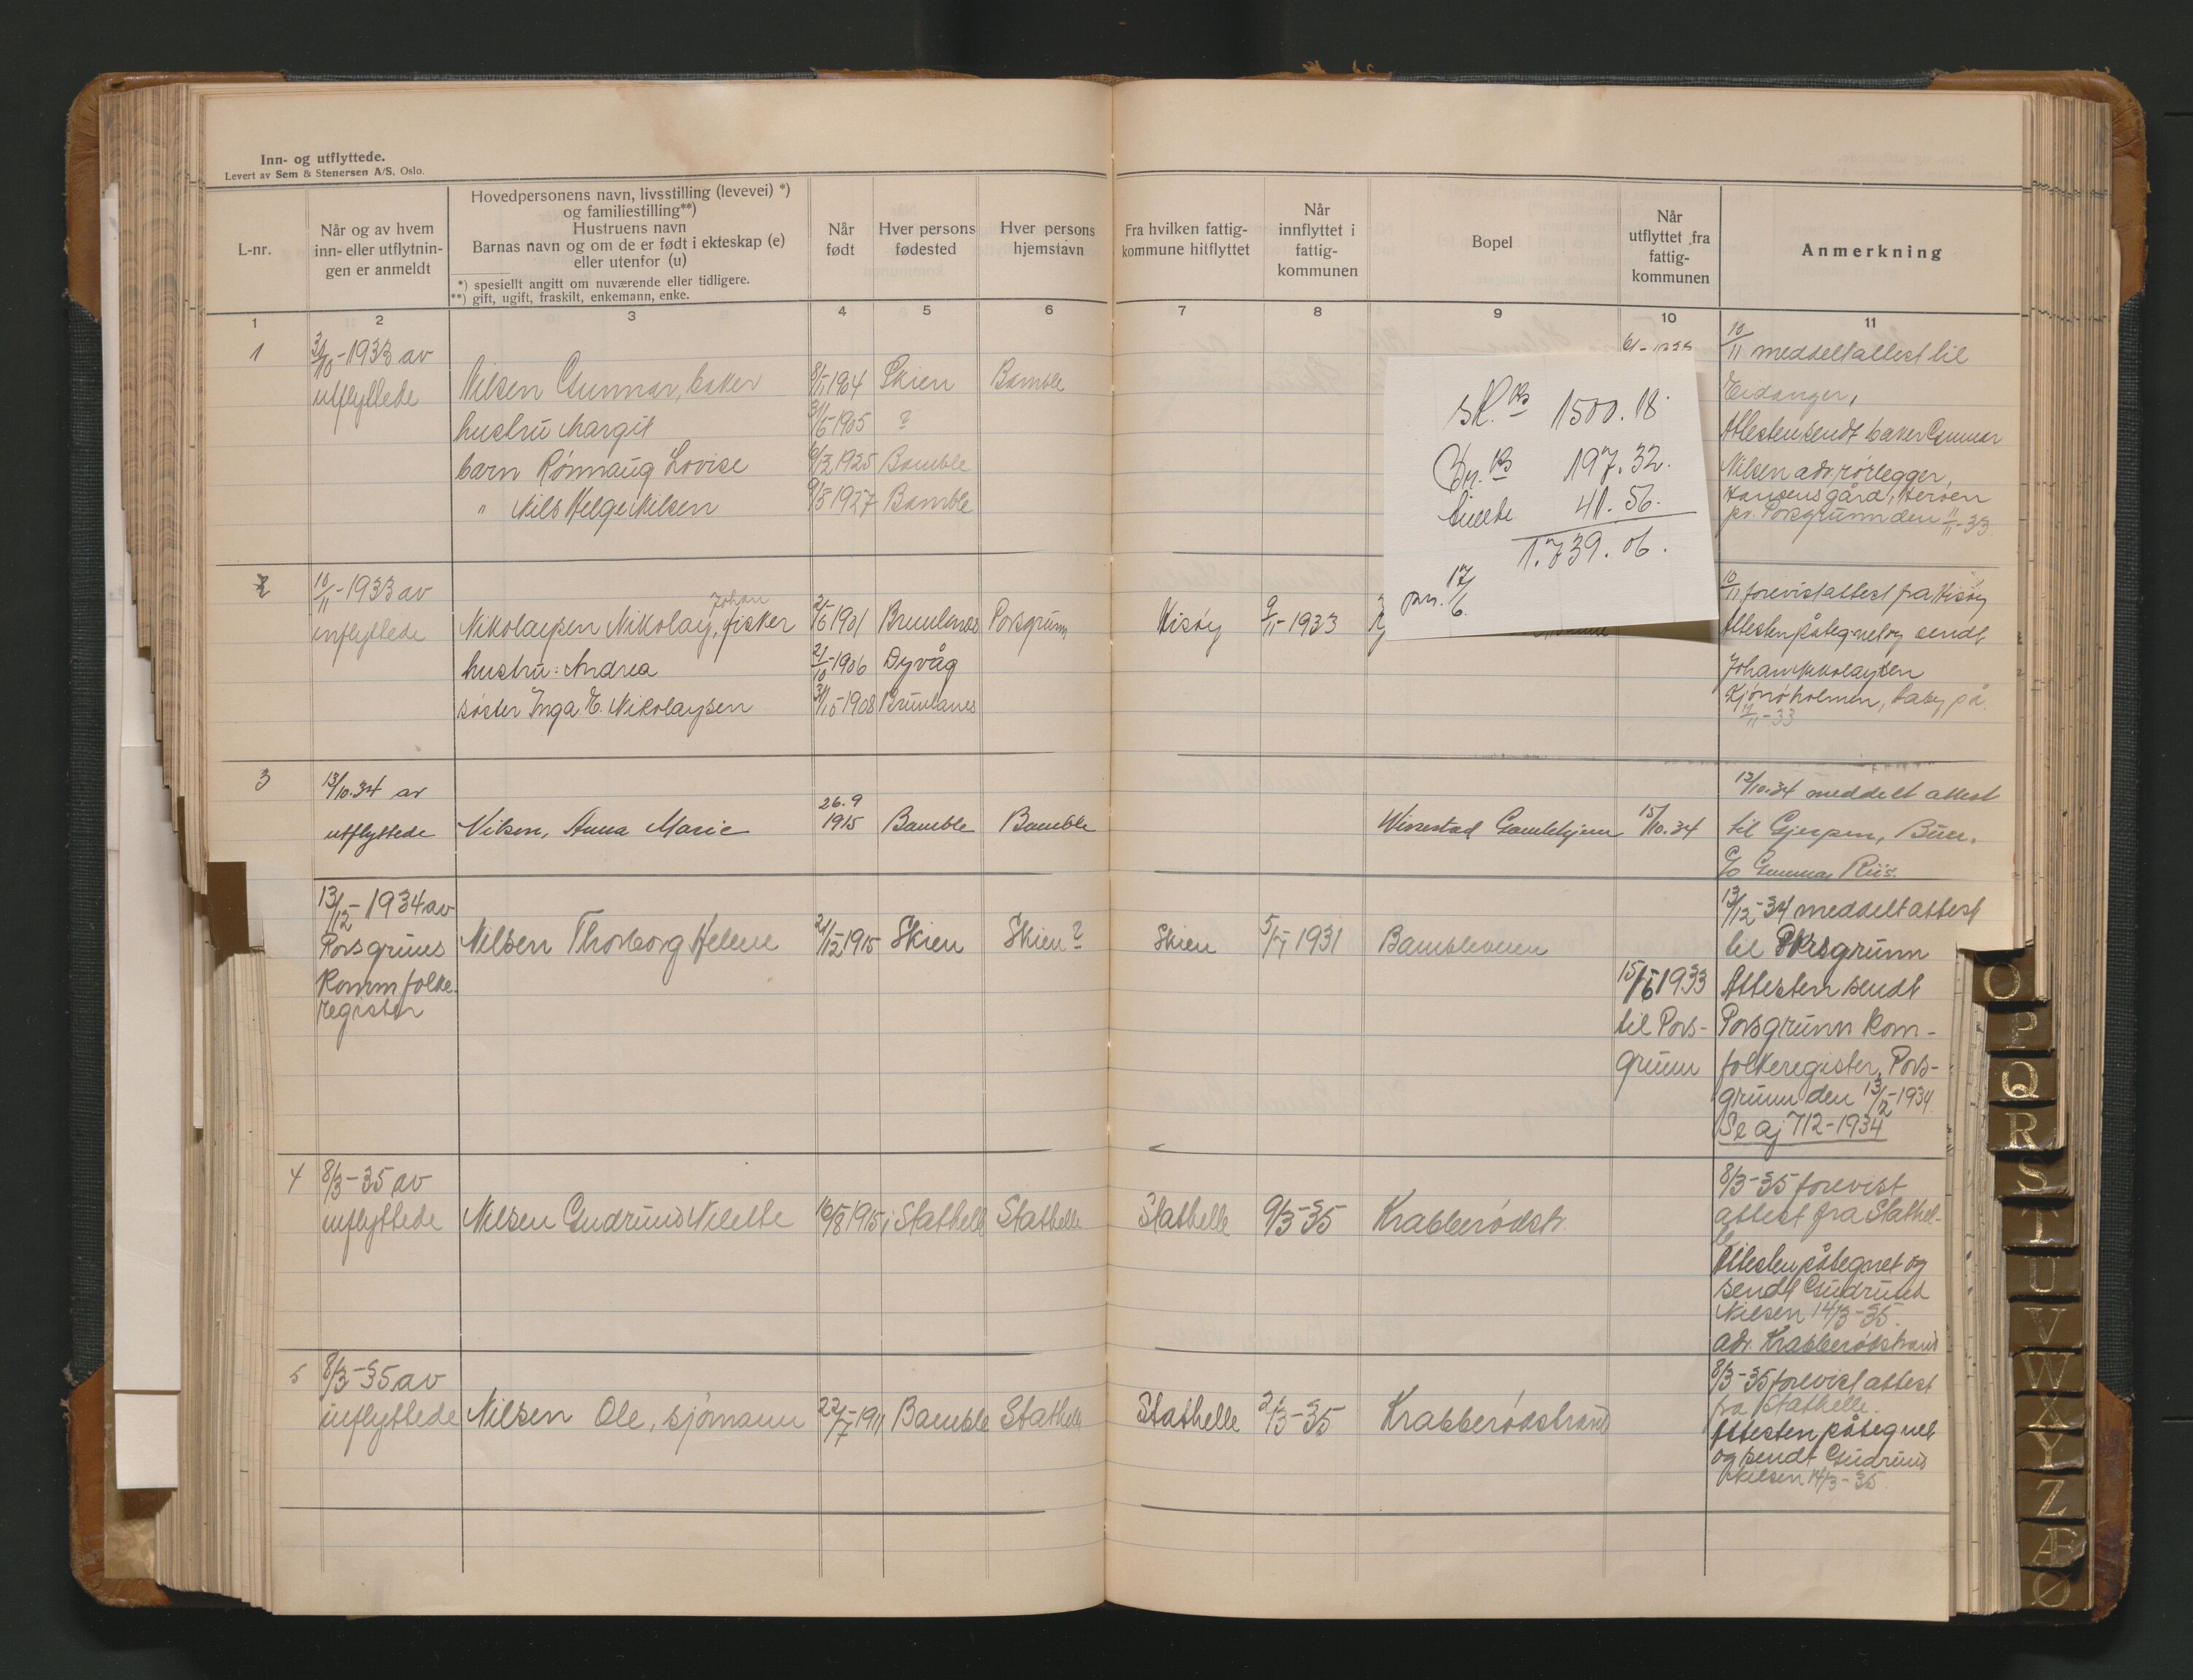 Inn- og utflyttede.
Levert av Sem & Stenersen A/S, Oslo.
L-nr.
Når og av hvem
inn- eller utflytnin-
gen er anmeldt
Hovedpersonens navn, livsstilling (levevei) *)
og familiestilling**)
Hustruens navn
Barnas navn og om de er født i ekteskap (e)
eller utenfor (u)
*) spesiellt angitt om nuværende eller tidligere.
**) gift, ugift, fraskilt, enkemann, enke.
Når
født
Hver persons
fødested
Hver persons
hjemstavn
Fra hvilken fattig-
kommune hitflyttet
Når
innflyttet i
fattig-
kommunen
Bopel
Når
utflyttet fra
fattig-
kommunen
Anmerkning
1 2 3 4 5 6 7 8 9 10 11
1 -1933 av 10/11 meddelt attest til
utflyttede Nilsen Gunnar, baker 1904 Skien Bamble Eidanger,
hustru Margit 1905 ? Attesten sendt baker Gunnar
barn Rønnaug Lovise 1925 Bamble Nilsen adr. rørlegger,
" Nils Helge Nilsen 1927 Bamble Hansens gård, Herøen
pr. Porsgrunn den 11/11-33
1500.18.
197.32.
41.56.
1.739.06.
17/6.
2 10/11-1933 av 10/11 forevist attest fra
innflyttede Nikolaysen Nikolay Johan, fisker 1901 Brunlanes Porsgrunn 9/11-1933 Attesten påtegnet og sendt
hustru: Andrea 21/10-1906 Dyvåg Johan Nikolaysen
søster Inga E. Nikolaysen -1908 Brunlanes
11-33
3 13/10.34 av 13/10.34 meddelt attest
utflyttede Nilsen, Anna Marie 26.9 1915 Bamble Bamble Gamlehjem 15/10.34 til Gjerpen,
c/o Gunnar Riis.
13/12-1934 av 13/12-34 meddelt attest
Porsgruns Nilsen Thorborg Helene 21/12-1915 Skien Skien? Skien 1931 Bambleveien til Porsgrunn
Komm folke- 15/6 1933 Attesten sendt
register til Pors- Porsgrunn Kom-
grunn folkeregister, Pors-
grunn den 13/12-1934.
Se aj 712-1934
4 8/3-35 av 8/3-35 forevist
innflyttede Nilsen Gudrun 16/8 1915 Stathelle Stathelle Stathelle 9/3-35 Krabberødstr. attest fra Stathel-
le
Attesten påtegnet og
sendt Gudrun
Nilsen 14/3-35.
adr. Krabberødstrand
5 8/3-35 av 8/3-35 forevist attest
innflyttede Nilsen Ole, sjømann 22/7-1911 Bamble Stathelle Stathelle 2/3-35 Krabberødstrand fra Stathelle.
Attesten påtegnet
og sendt Gudrun
Nilsen 14/3-35.
O
P
Q
R
S
T
U
V
W
X
Y
Z
Æ
Ø